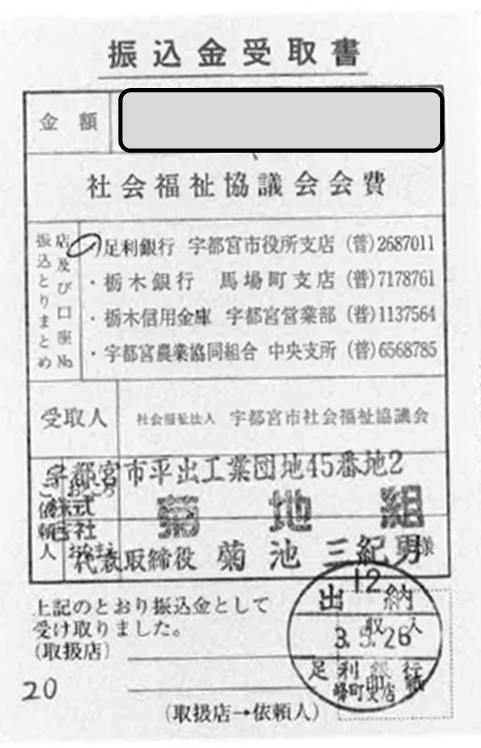 振込金受取書
金額
社会福祉協議会会費
振込とりまとめ店及び口座No.
・足利銀行 宇都宮市役所支店 (普)2687011
・栃木銀行 馬場町支店 (普)7178761
・栃木信用金庫 宇都宮営業部 (普)1137564
・宇都宮農業協同組合 中央支所 (普)6568785
受取人 社会福祉法人 宇都宮市社会福祉協議会
ご依頼人
宇都宮市平出工業団地45番地2
株式会社 菊地組
代表取締役 菊池三紀男 様
上記のとおり振込金として
受け取りました。
(取扱店)
20
(取扱店→依頼人)
12
出納
3.5.26
足利銀行
峰町支店
収入
印紙